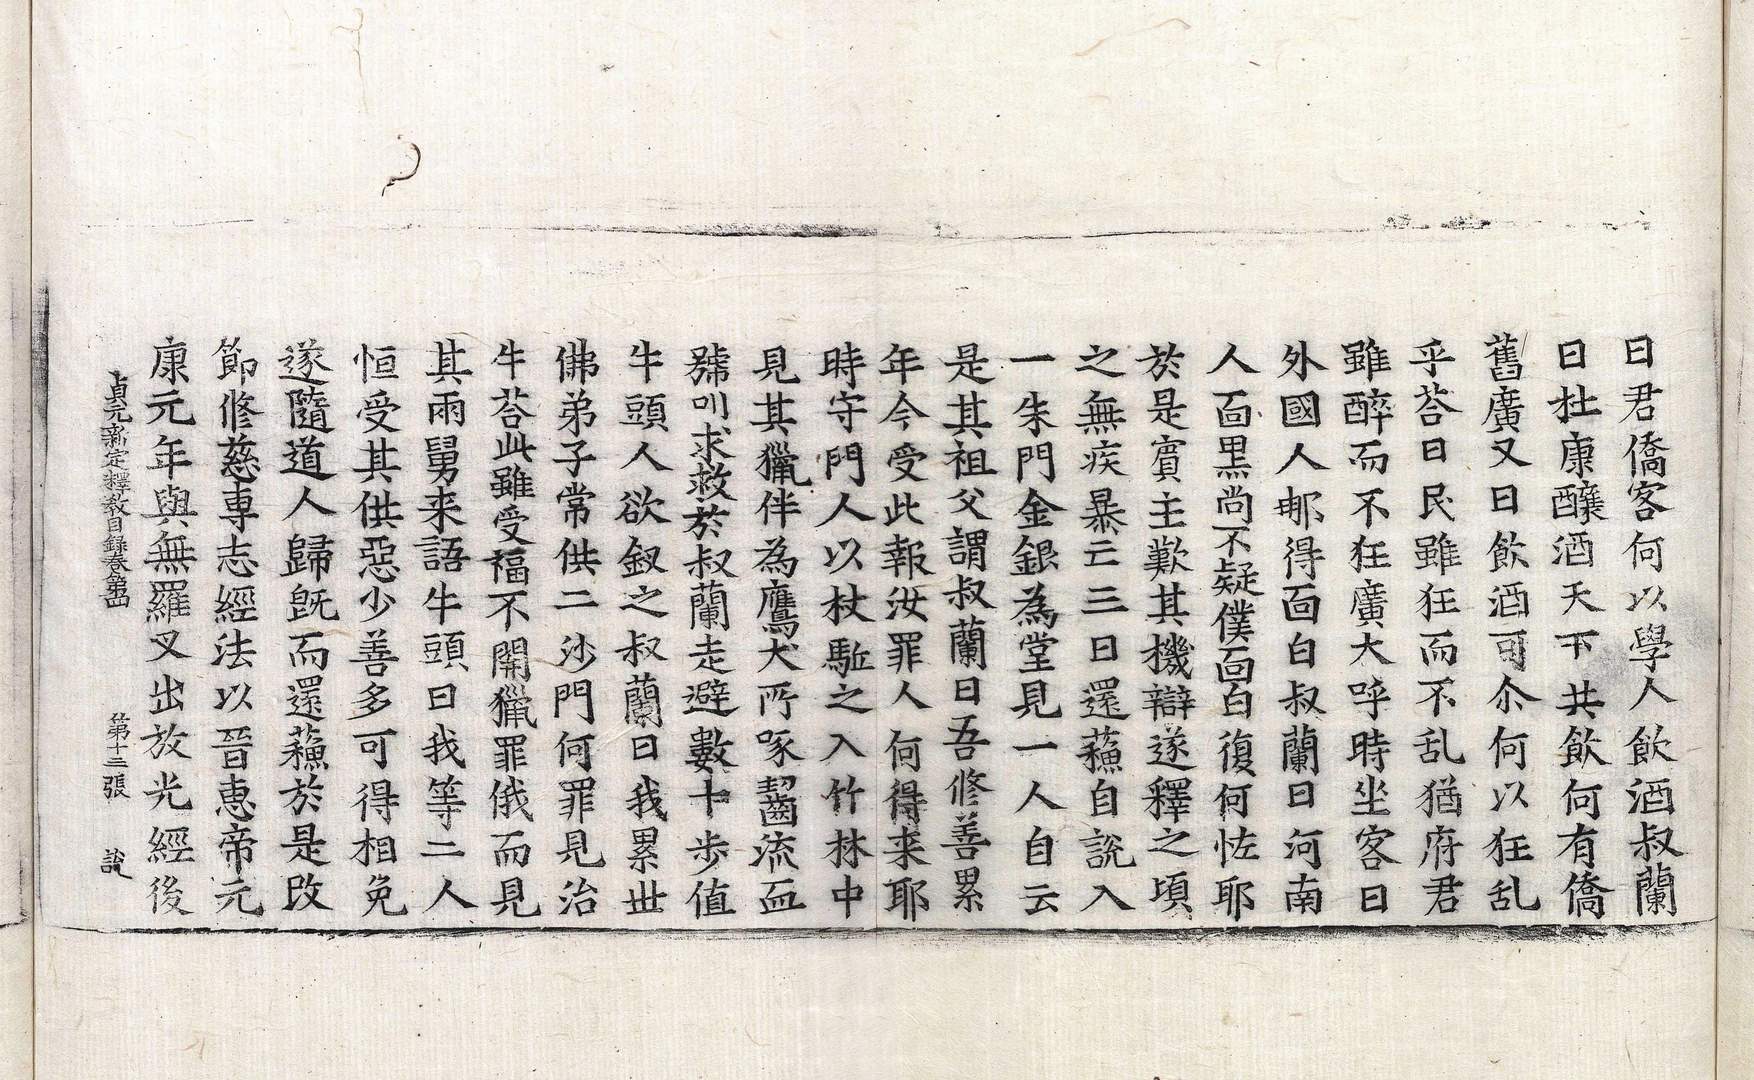 曰君僑客何以學人飲酒叔蘭
曰杜康釀酒天下共飲何有僑
舊廣又曰飲酒可尒何以狂乱
乎荅曰民雖狂而不乱猶府君
雖醉而不狂廣大呼時坐客曰
外國人那得面白叔蘭曰河南
人面黒尚不疑僕面白復何恠耶
於是賔主歎其機辯遂釋之頃
之無疾暴亡三日還蘓自說入
一朱門金銀為堂見一人自云
是其祖父謂叔蘭曰吾修善累
年今受此報汝罪人何得来耶
時守門人以杖駈之入竹林中
見其獵伴為鷹犬所啄齧流血
號叫求救於叔蘭走避數十步值
牛頭人欲釵之叔蘭曰我累世
佛弟子常供二沙門何罪見治
牛荅此雖受福不關獵罪俄而見
其兩舅来語牛頭曰我等二人
恒受其供惡少善多可得相免
遂隨道人歸旣而還蘓於是改
節修慈専志經法以晉恵帝元
康元年與無羅叉出放光經後
貞元新定釋教目録卷第四 第十三張 說